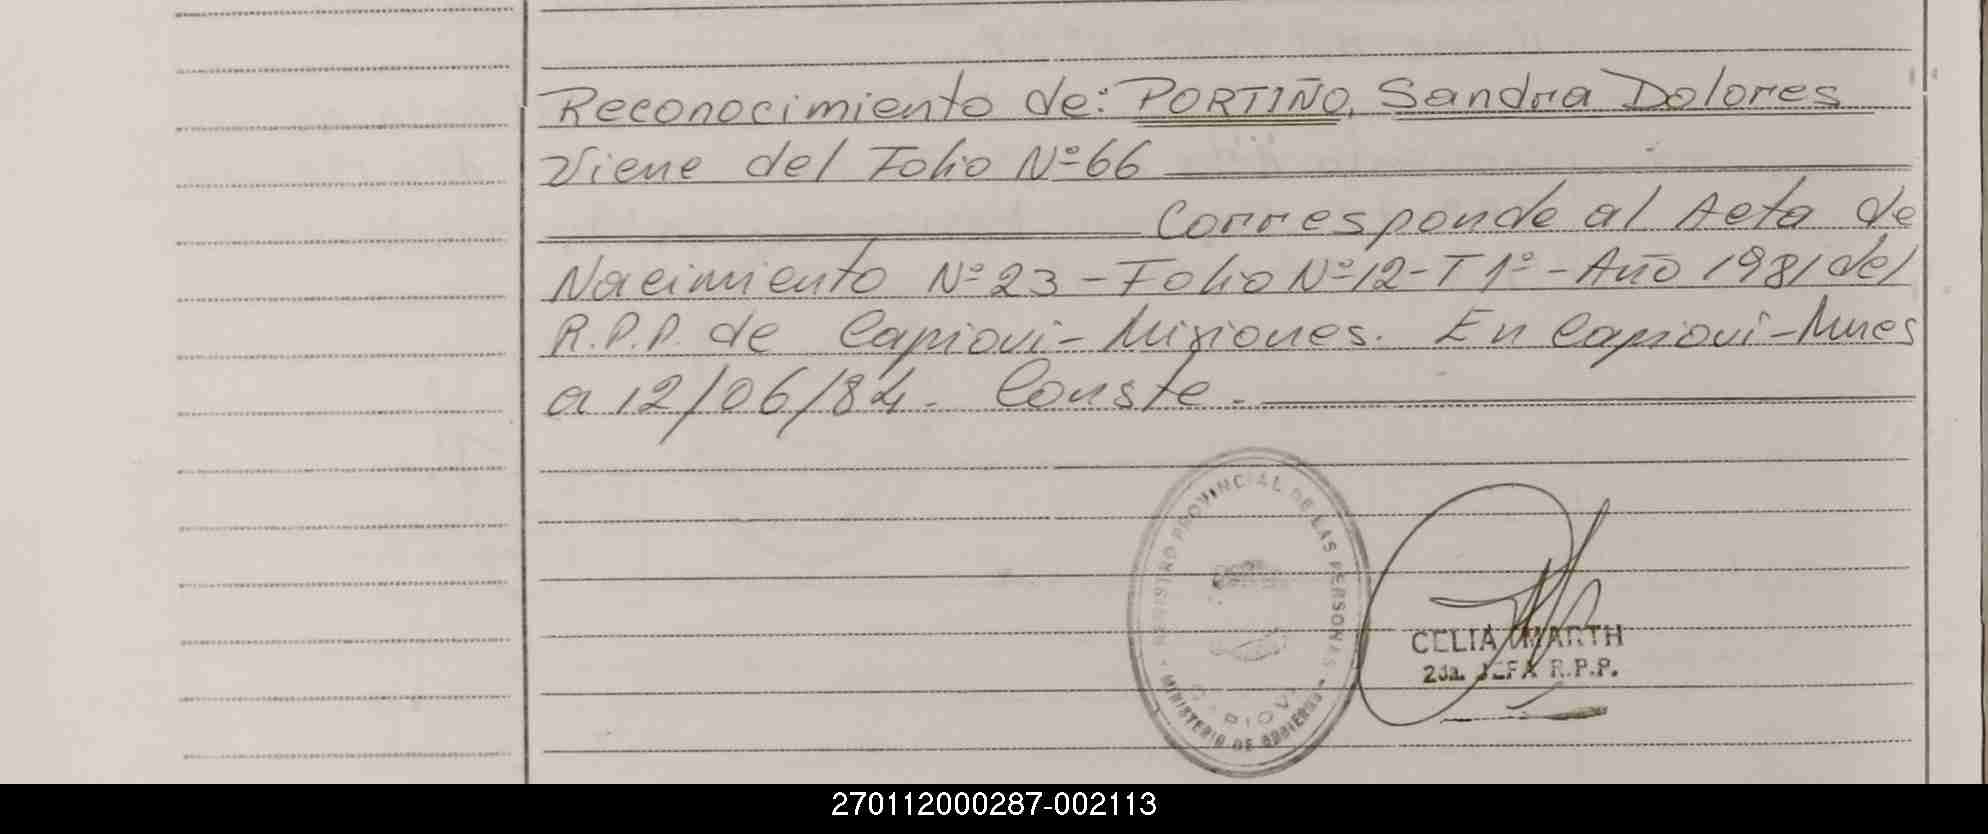 Reconocimiento de: PORTIÑO, Sandra Dolores
Viene del Folio Nº 66
Corresponde al Acta de
Nacimiento Nº 23 - Folio Nº 12 - T 1º - Año 1981 del
R.P.P. de Capioví - Misiones. En Capioví - Mnes
a 12/06/84. Conste.
REGISTRO PROVINCIAL DE LAS PERSONAS
CAPIOVI
MINISTERIO DE GOBIERNO
CELIA MARTH
2da. JEFA R.P.P.
270112000287-002113